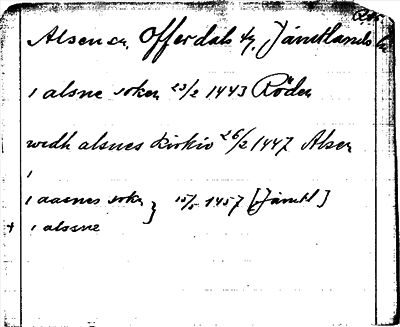 Alsen sn, Offerdals tg, Jämtlands l
i alsne soken 23/2 1443 Röden
wedh alsnes kirkio 26/2 1447 Alsen
i aasnes soken } 15/5 1457 [Jämtl]
+ i alssne